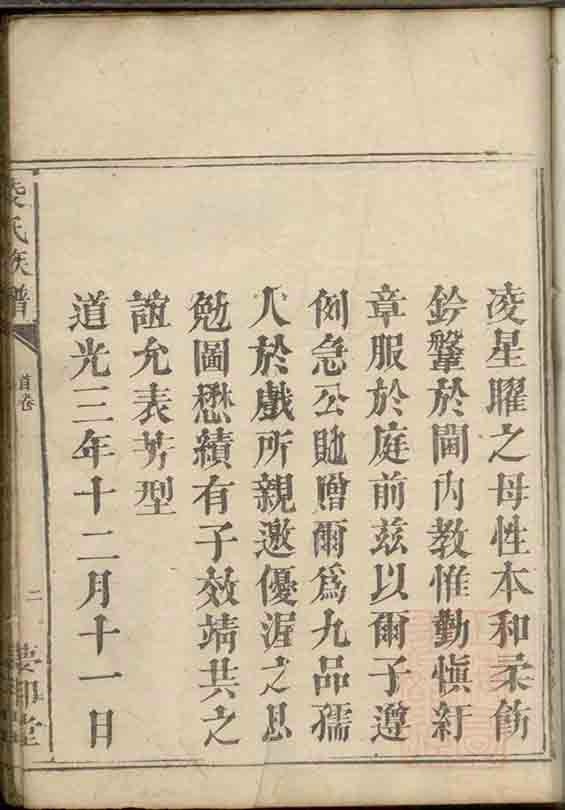 凌星曜之母性本和柔飭
鈐鞶於閫內教惟勤愼紆
章服於庭前茲以爾子遵
例急公貤贈爾爲九品孺
人於戲所親邀優渥之恩
勉圖懋績有子效靖共之
誼允表芳型
道光三年十二月十一日
凌氏族譜
首卷
二
堂